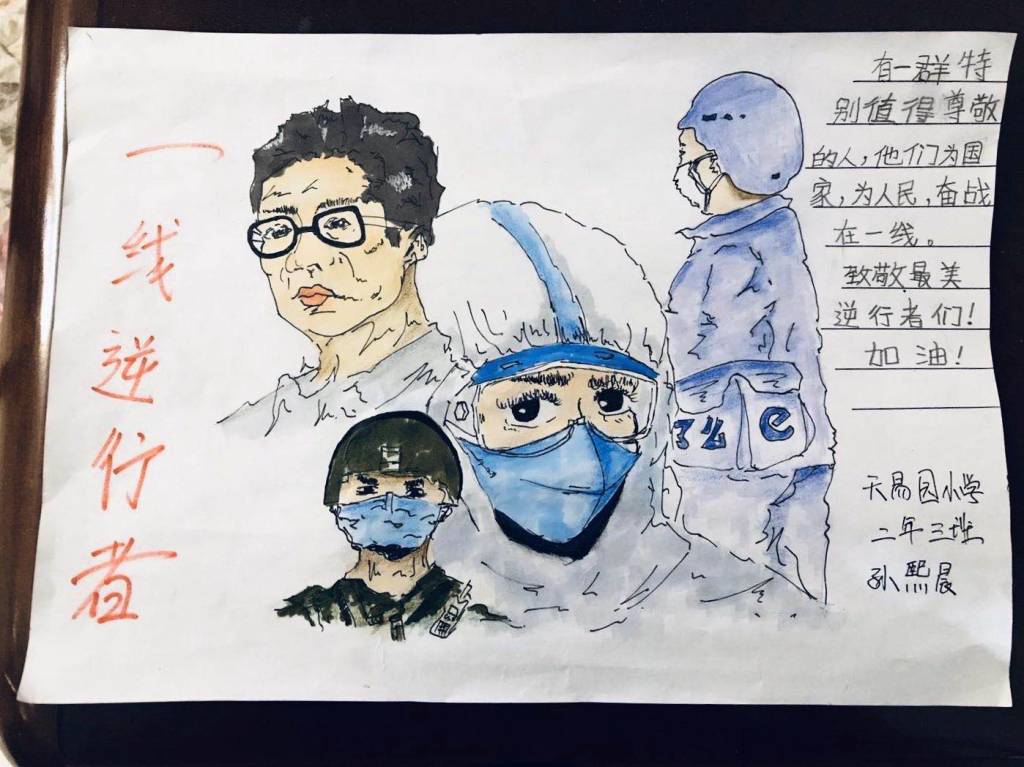 一线逆行者
有一群特
别值得尊敬
的人，他们为国
家，为人民，奋战
在一线。
致敬最美
逆行者们！
加油！
了么 e
天易园小学
二年三班
孙熙晨